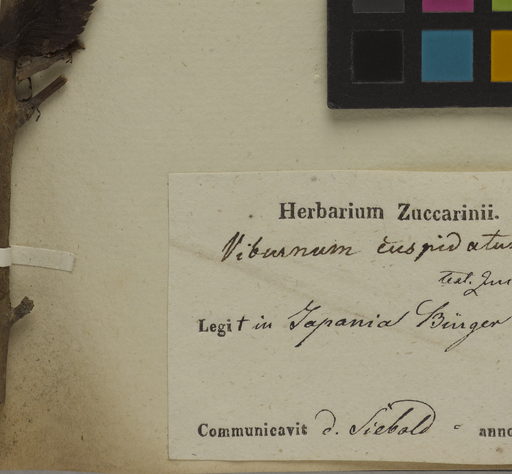 Herbarium Zuccarinii.
Viburnum cuspidatum
test. Zuc
Legit in Japonia Bürger
Communicavit d. Siebold anno